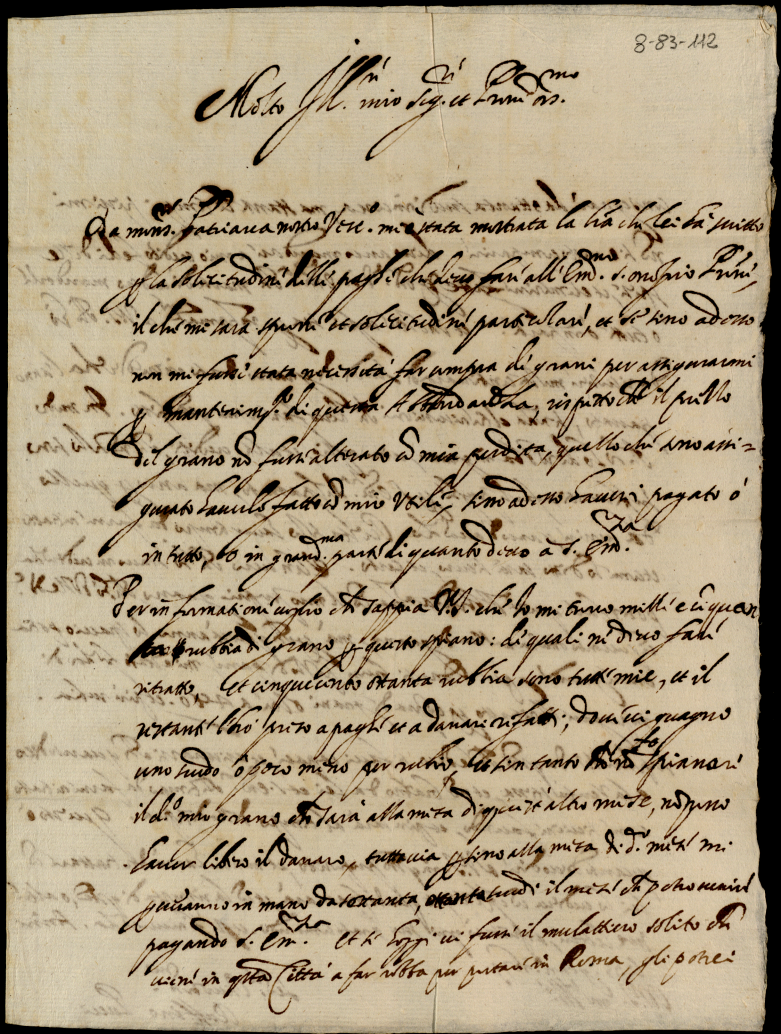 8-83-112
Molto Ill.re mio Sig.re et Pron oss.mo
Da mons.r Patriarca nostro Vesc.o mi è stata mostrata la lra che lei ha scritto
p la solicitudine delli paghi che devo fare all'Em.mo s. onofrio Prine,
il che mi sara sprone et solicitudine particolare, et se sino adesso
non mi fusse stata necessità far compra di grani per assigurarmi
p mantenim.to di questa Abbondanza, rispetto che il prezzo
del grano nō fusse alterato cō mia perdita, quello che sino assi=
gurato haverlo fatto cō mio utile, sino adesso haverei pagato ò
in tutto, ò in grand.ma parte di quanto devo a S. Em.za
Per informatione voglio che sappia V.S. che Io mi trovo mille e cīquan
ta rubbia di grano p questo spiano: di quali ne devo fare
ritratto, et cinquecento ottanta rubbia sono tutte mie, et il
restante l'hò preso a paghe et a danare, dove ci guagno
uno scudo ò poco meno per rubbio, et sin tanto spianare
il d.o mio grano che sarà alla metà di quest'altro mese, nō posso
haver libero il danaro, tuttavia p sino alla metà di d.o mese mi
in mano da settanta, ottanta scudi il mese che potro venire
pagando S. Em.za et se hoggi ci fusse il mulattiero solito che
viene in qsta Città a far robba per portare in Roma, gli potrei